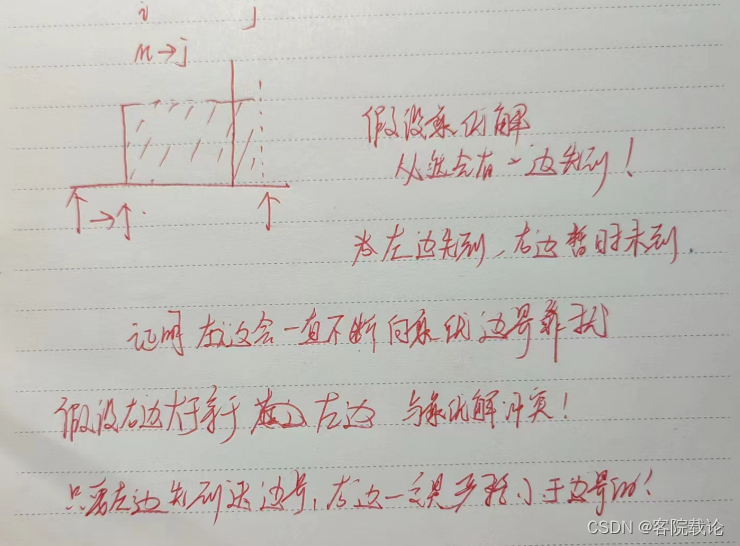 i j
n→j
假设最优解
从然会有一边先到!
当左边先到,右边暂时未到.
证明 左边会一直不断向最优边界靠拢
假设右边大于等于 左边 与最优解冲突!
只要左边先到达边界,右边一定是严格小于边界的!
CSDN @客院载论